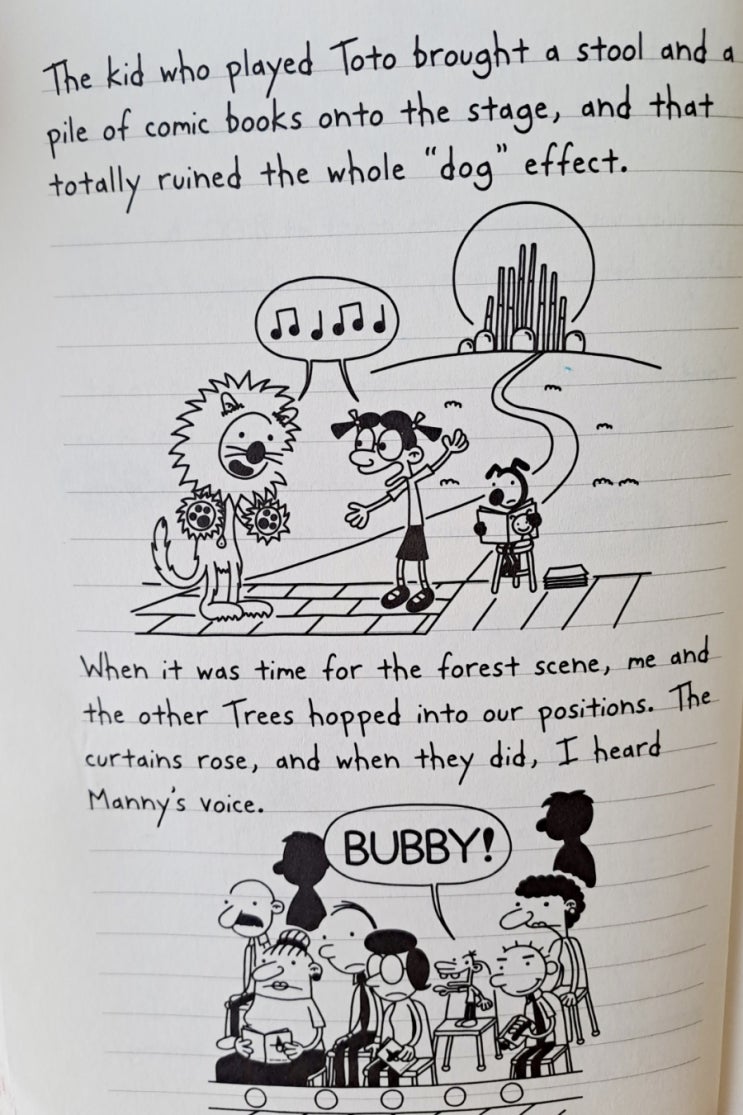 The kid who played Toto brought a stool and a
pile of comic books onto the stage, and that
totally ruined the whole "dog" effect.
When it was time for the forest scene, me and
the other Trees hopped into our positions. The
curtains rose, and when they did, I heard
Manny's voice.
BUBBY!